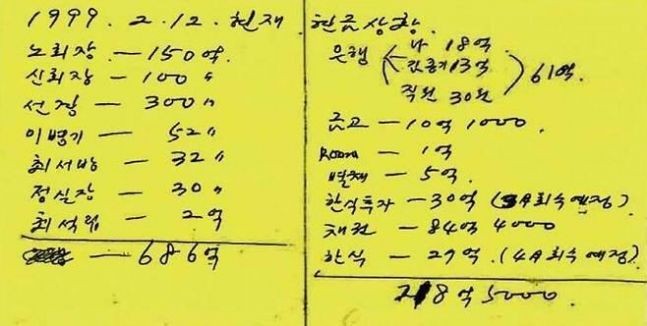 1999. 2. 12. 현재
노회장 — 150억.
신회장 — 100 〃
선장 — 300 〃
이병기 — 52 〃
최서방 — 32 〃
정실장 — 30 〃
최석림 — 2억
— 686억
현금상황.
은행 나 18억.
13억
직원 30억
61억.
금고 — 10억 1000.
Room — 1억
별채 — 5억.
한식투자 — 30억 (3月회수예정)
채권 — 84억 4000
한식 — 27억. (4月회수예정)
218억 5000.